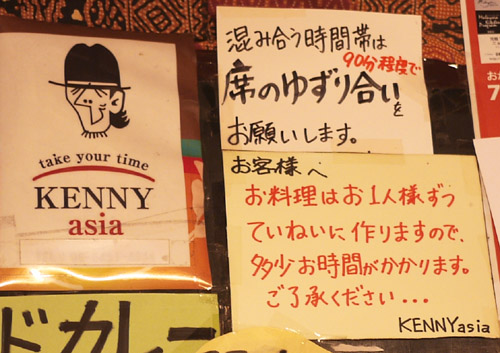 take your time
KENNY
asia
混み合う時間帯は
90分程度で
席のゆずり合いを
お願いします。
お客様へ
お料理はお1人様ずつ
ていねいに作りますので、
多少お時間がかかります。
ご了承ください...
KENNYasia
ドカレー